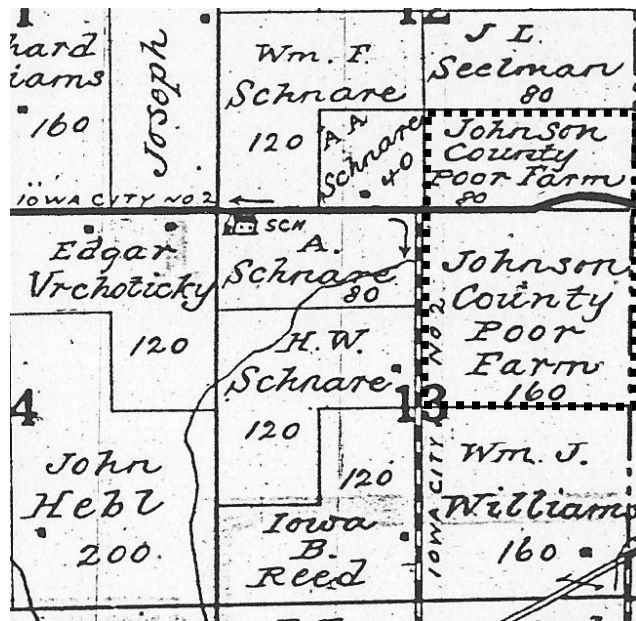 1
12
hard
iams
160
Joseph
Wm. F.
Schnare
120
A A
Schnare
40
J L.
Seelman
80
Johnson
County
Poor Farm
80
IOWA CITY NO. 2
SCH.
Edgar
Vrchoticky
120
A.
Schnare
80
Johnson
County
Poor
Farm
160
NO 2
IOWA CITY
H. W.
Schnare
120
4
13
John
Hebl
200.
120
Iowa
B.
Reed
Wm. J.
Williams
160